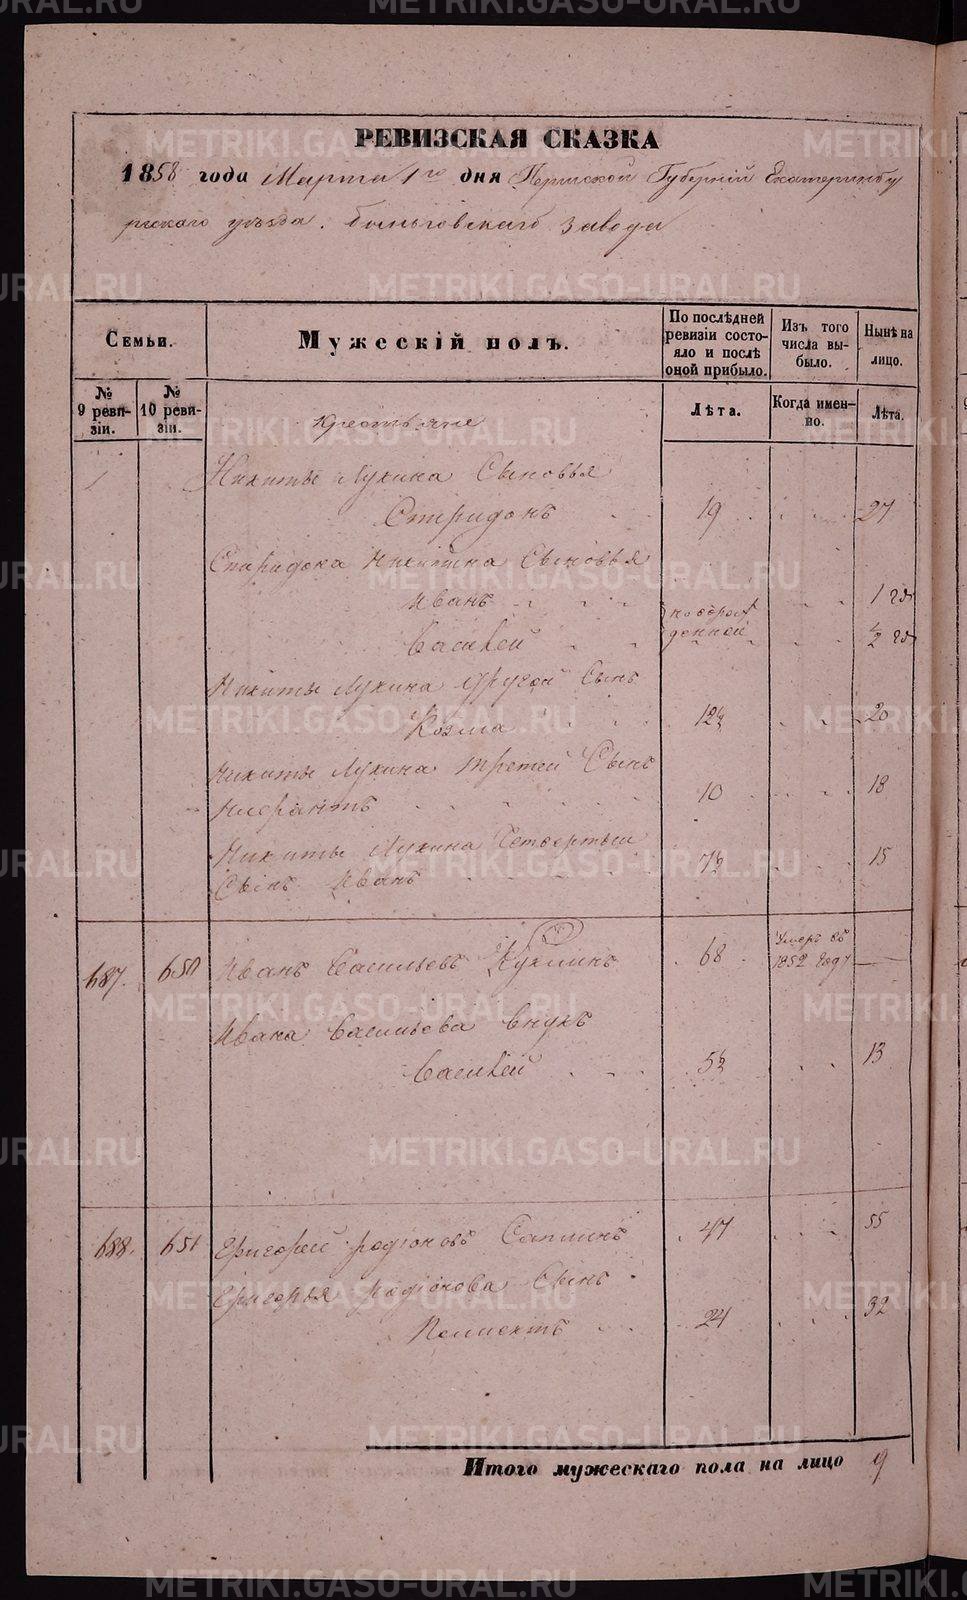 РЕВИЗСКАЯ СКАЗКА
1858 года Марта 1го дня Пермской Губерніи Екатеринбу
ргскаго уѣзда. Быньговскаго Завода
Семьи.
№ 9 ревизіи.
№ 10 ревизіи.
Мужескій полъ.
По послѣдней ревизіи состояло и послѣ оной прибыло.
Лѣта.
Изъ того числа выбыло.
Когда именно.
Нынѣ на лицо.
Лѣта.
Крестьяне
Никиты Лукина Сыновья
Спиридонъ 19 27
Спиридона Никитина Сыновья
Иванъ 1 го
Василей 1/2 го
Никиты Лукина другой Сынъ
Козма 12½ 20
Никиты Лукина третей Сынъ
10 18
Никиты Лукина Четвертый
Сынъ Иванъ 7½ 15
687. 650 Иванъ Васильевъ Куклинъ 68 Умеръ въ 1852 году
Ивана Васильева внукъ
Василей 5½ 13
688. 651 Григорей Родіоновъ Саплинъ 47 55
Григорья Родіонова Сынъ
24 32
Итого мужескаго пола на лицо 9
METRIKI.GASO-URAL.RU